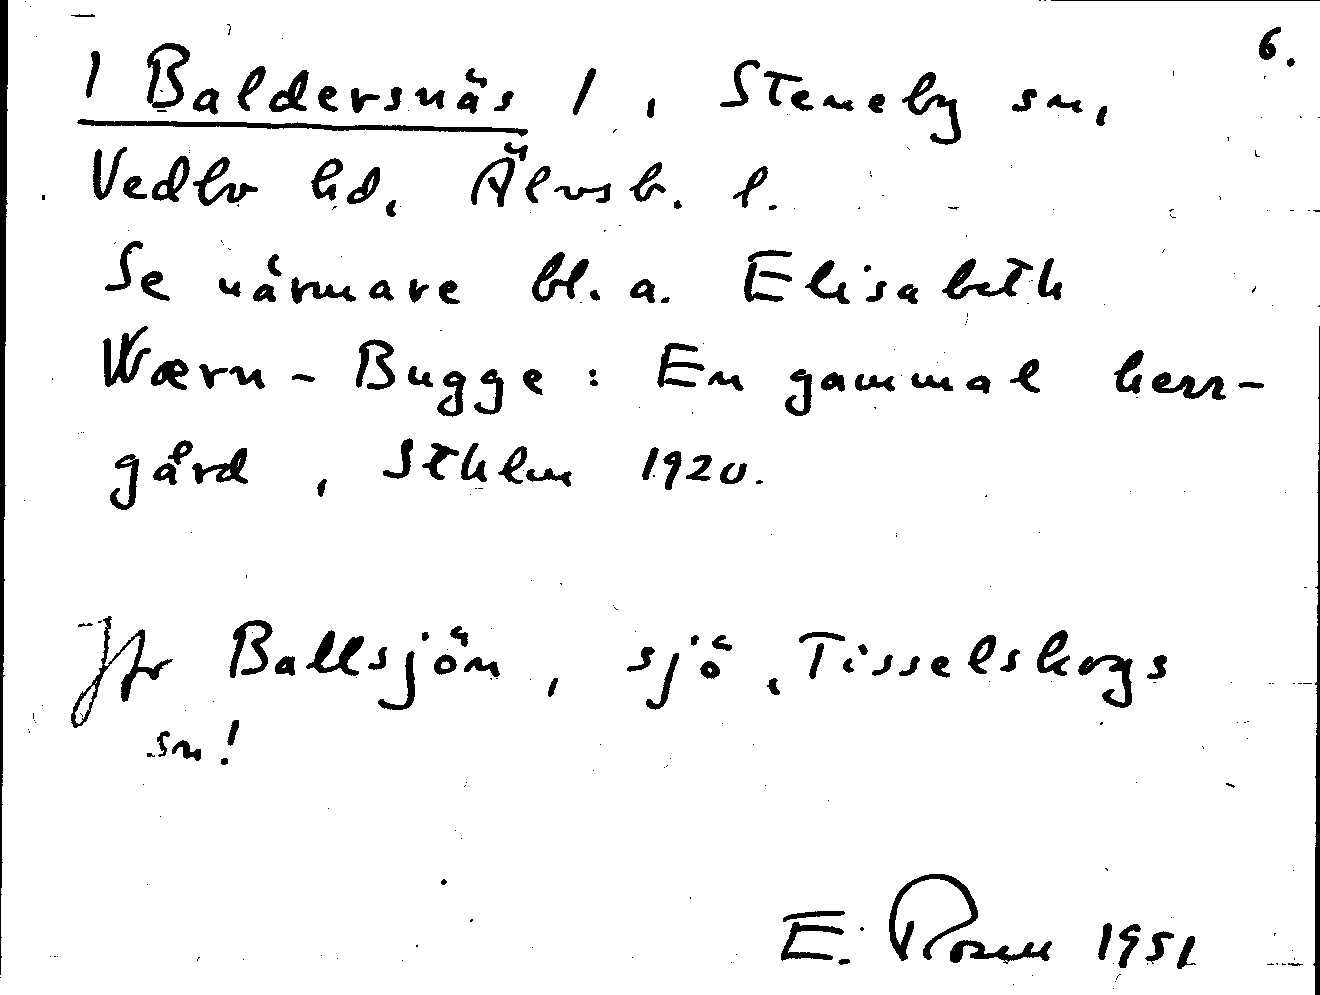 6.
/ Baldersnäs / , Steneby sn,
Vedbo hd, Älvsb. l.
Se närmare bl. a. Elisabeth
Wærn - Bugge : En gammal herr-
gård , Sthlm 1920.
Jfr Ballsjön , sjö , Tisselskogs
sn!
E. Rosen 1951